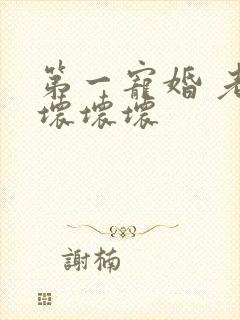 第一寵婚
壞壞壞
謝楠